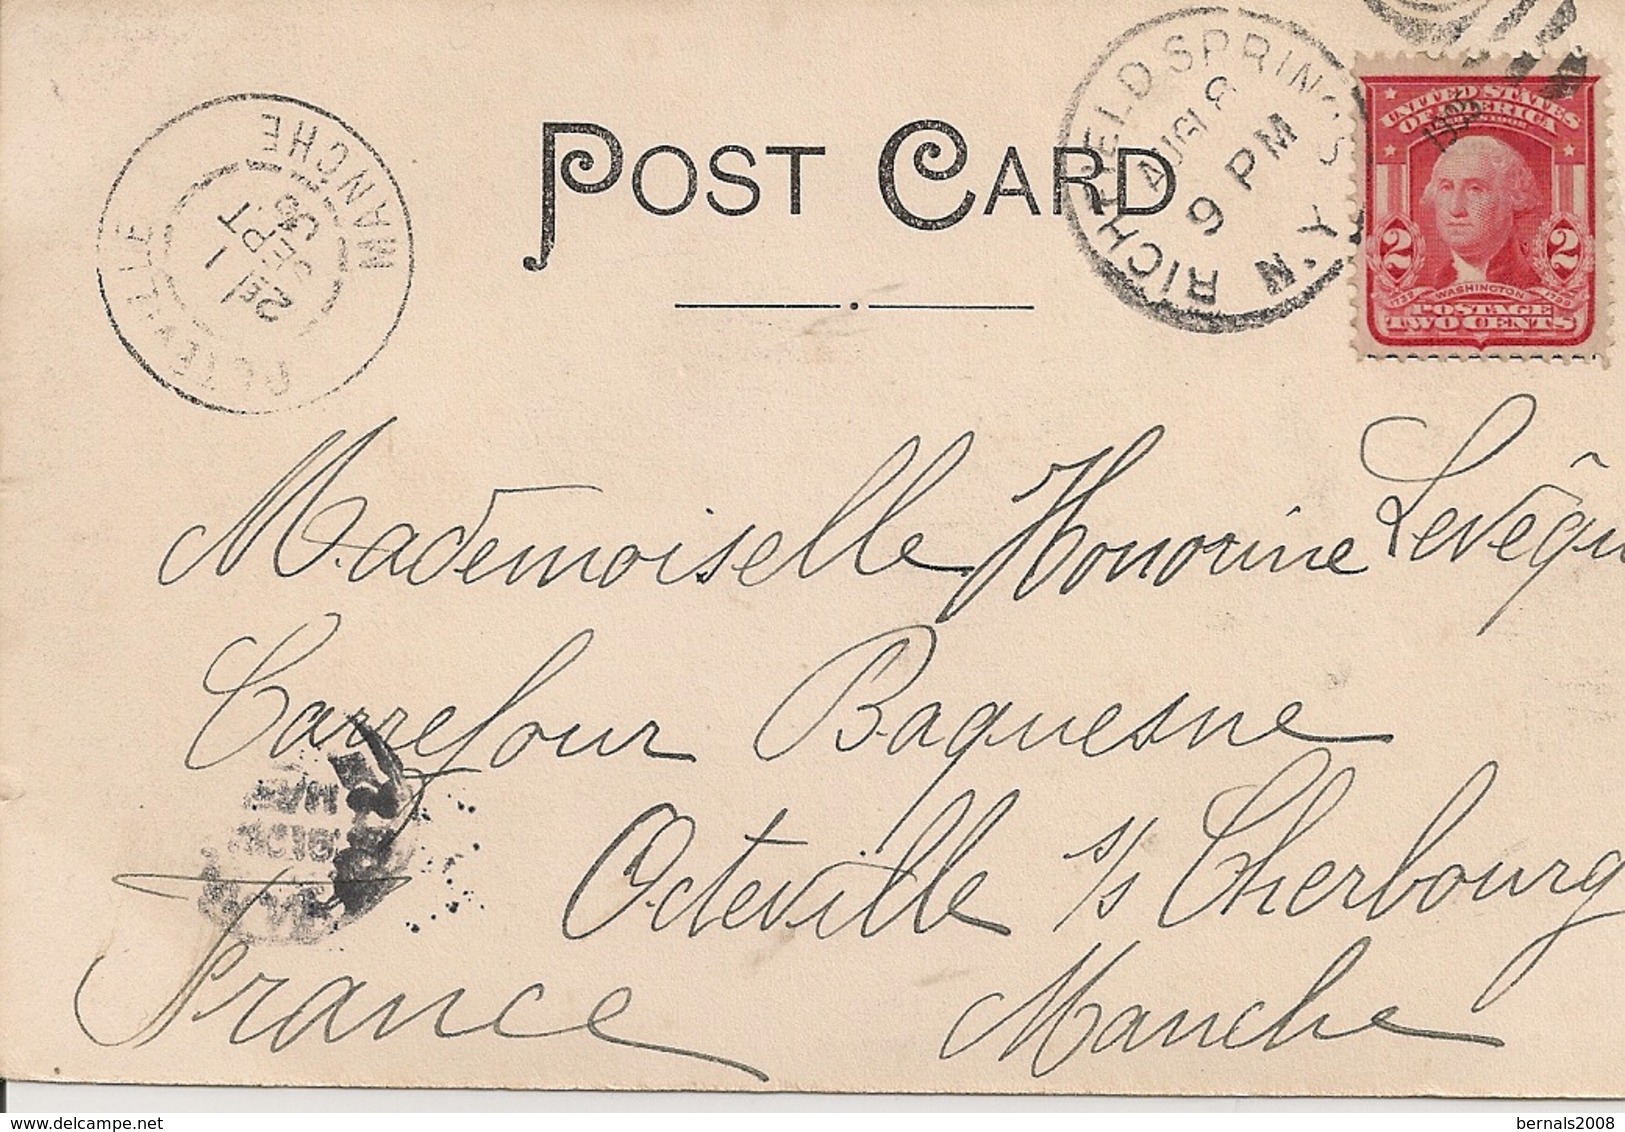 POST CARD
RICHFIELD SPRINGS
N.Y.
AUG 18
9 PM
1905
UNITED STATES
OF AMERICA
2 2
1732 WASHINGTON 1799
POSTAGE
TWO CENTS
OCTEVILLE
MANCHE
1
SEPT
05
Mademoiselle Honorine Levêqu
Carrefour Baquesne
Octeville s/s Cherbourg
France Manche
bernals2008